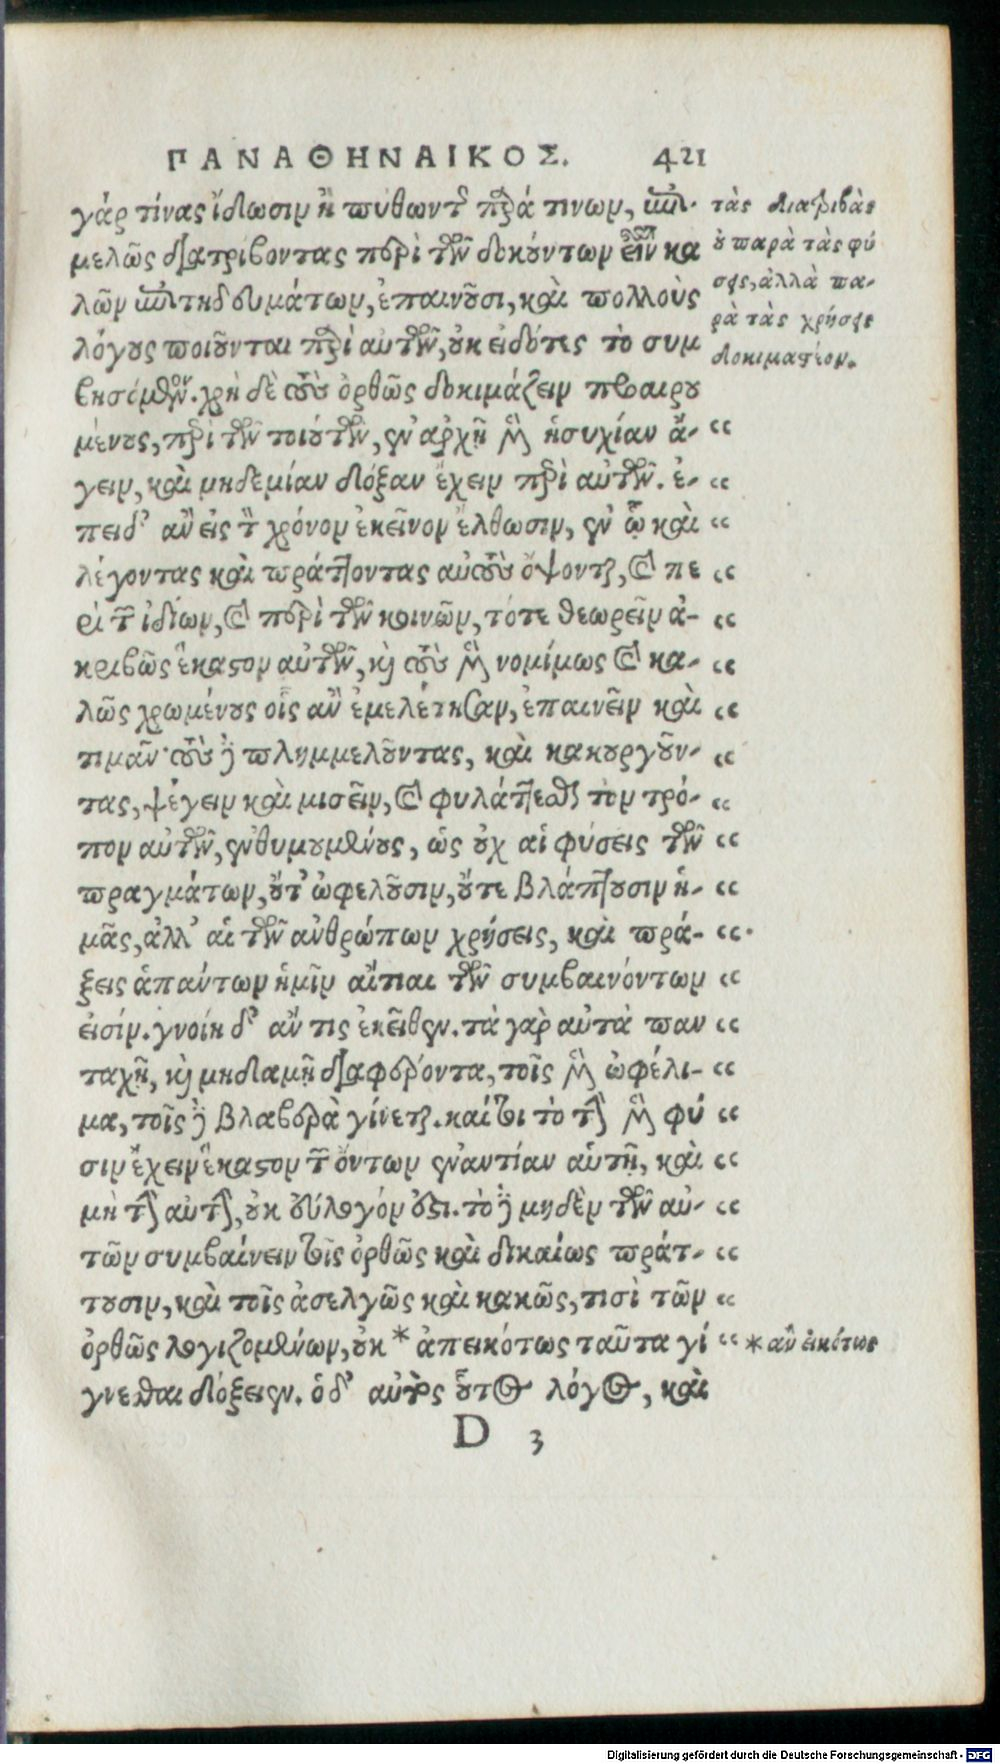 ΠΑΝΑΘΗΝΑΙΚΟΣ. 421
γάρ τινας ἴδωσιν ἢ πύθωνται παρά τινων, ἐπι-
μελῶς διατρίβοντας περὶ τῶν δοκούντων εἶναι κα
λῶν ἐπιτηδευμάτων, ἐπαινοῦσι, καὶ πολλοὺς
λόγους ποιοῦνται περὶ αὐτῶν, οὐκ εἰδότες τὸ συμ
βησόμενον. χρὴ δὲ τοὺς ὀρθῶς δοκιμάζειν προαιρου
μένους, περὶ τῶν τοιούτων, ἐν ἀρχῇ μὲν ἡσυχίαν ἄ-
γειν, καὶ μηδεμίαν δόξαν ἔχειν περὶ αὐτῶν. ἐ-
πειδ' ἂν εἰς τὸν χρόνον ἐκεῖνον ἔλθωσιν, ἐν ᾧ καὶ
λέγοντας καὶ πράττοντας αὐτοὺς ὄψονται, καὶ πε
ρὶ τῶν ἰδίων, καὶ περὶ τῶν κοινῶν, τότε θεωρεῖν ἀ-
κριβῶς ἕκαστον αὐτῶν, καὶ τοὺς μὲν νομίμως καὶ κα-
λῶς χρωμένους οἷς ἂν ἐμελέτησαν, ἐπαινεῖν καὶ
τιμᾶν· τοὺς δὲ πλημμελοῦντας, καὶ κακουργοῦν-
τας, ψέγειν καὶ μισεῖν, καὶ φυλάττεσθαι τὸν τρό-
πον αὐτῶν, ἐνθυμουμένους, ὡς οὐχ αἱ φύσεις τῶν
πραγμάτων, οὔτ' ὠφελοῦσιν, οὔτε βλάπτουσιν ἡ-
μᾶς, ἀλλ' αἱ τῶν ἀνθρώπων χρήσεις, καὶ πρά-
ξεις ἁπάντων ἡμῖν αἴτιαι τῶν συμβαινόντων
εἰσίν. γνοίη δ' ἄν τις ἐκεῖθεν. τὰ γὰρ αὐτὰ παν
ταχῇ, καὶ μηδαμῇ διαφέροντα, τοῖς μὲν ὠφέλι-
μα, τοῖς δὲ βλαβερὰ γίνεται. καίτοι τὸ τὴν μὲν φύ
σιν ἔχειν ἕκαστον τῶν ὄντων ἐναντίαν αὑτῇ, καὶ
μὴ τὴν αὐτὴν, οὐκ εὔλογόν ἐστι. τὸ δὲ μηδὲν τῶν αὐ-
τῶν συμβαίνειν τοῖς ὀρθῶς καὶ δικαίως πράτ-
τουσιν, καὶ τοῖς ἀσελγῶς καὶ κακῶς, τισὶ τῶν
ὀρθῶς λογιζομένων, οὐκ * ἀπεικότως ταῦτα γί
γνεσθαι δόξειεν. ὁ δ' αὐτὸς οὗτος λόγος, καὶ
D 3
τὰς διατριβὰς
οὐ παρὰ τὰς φύ
σεις, ἀλλὰ πα-
ρὰ τὰς χρήσεις
δοκιμαστέον.
* ἂν εἰκότως
Digitalisierung gefördert durch die Deutsche Forschungsgemeinschaft - DFG